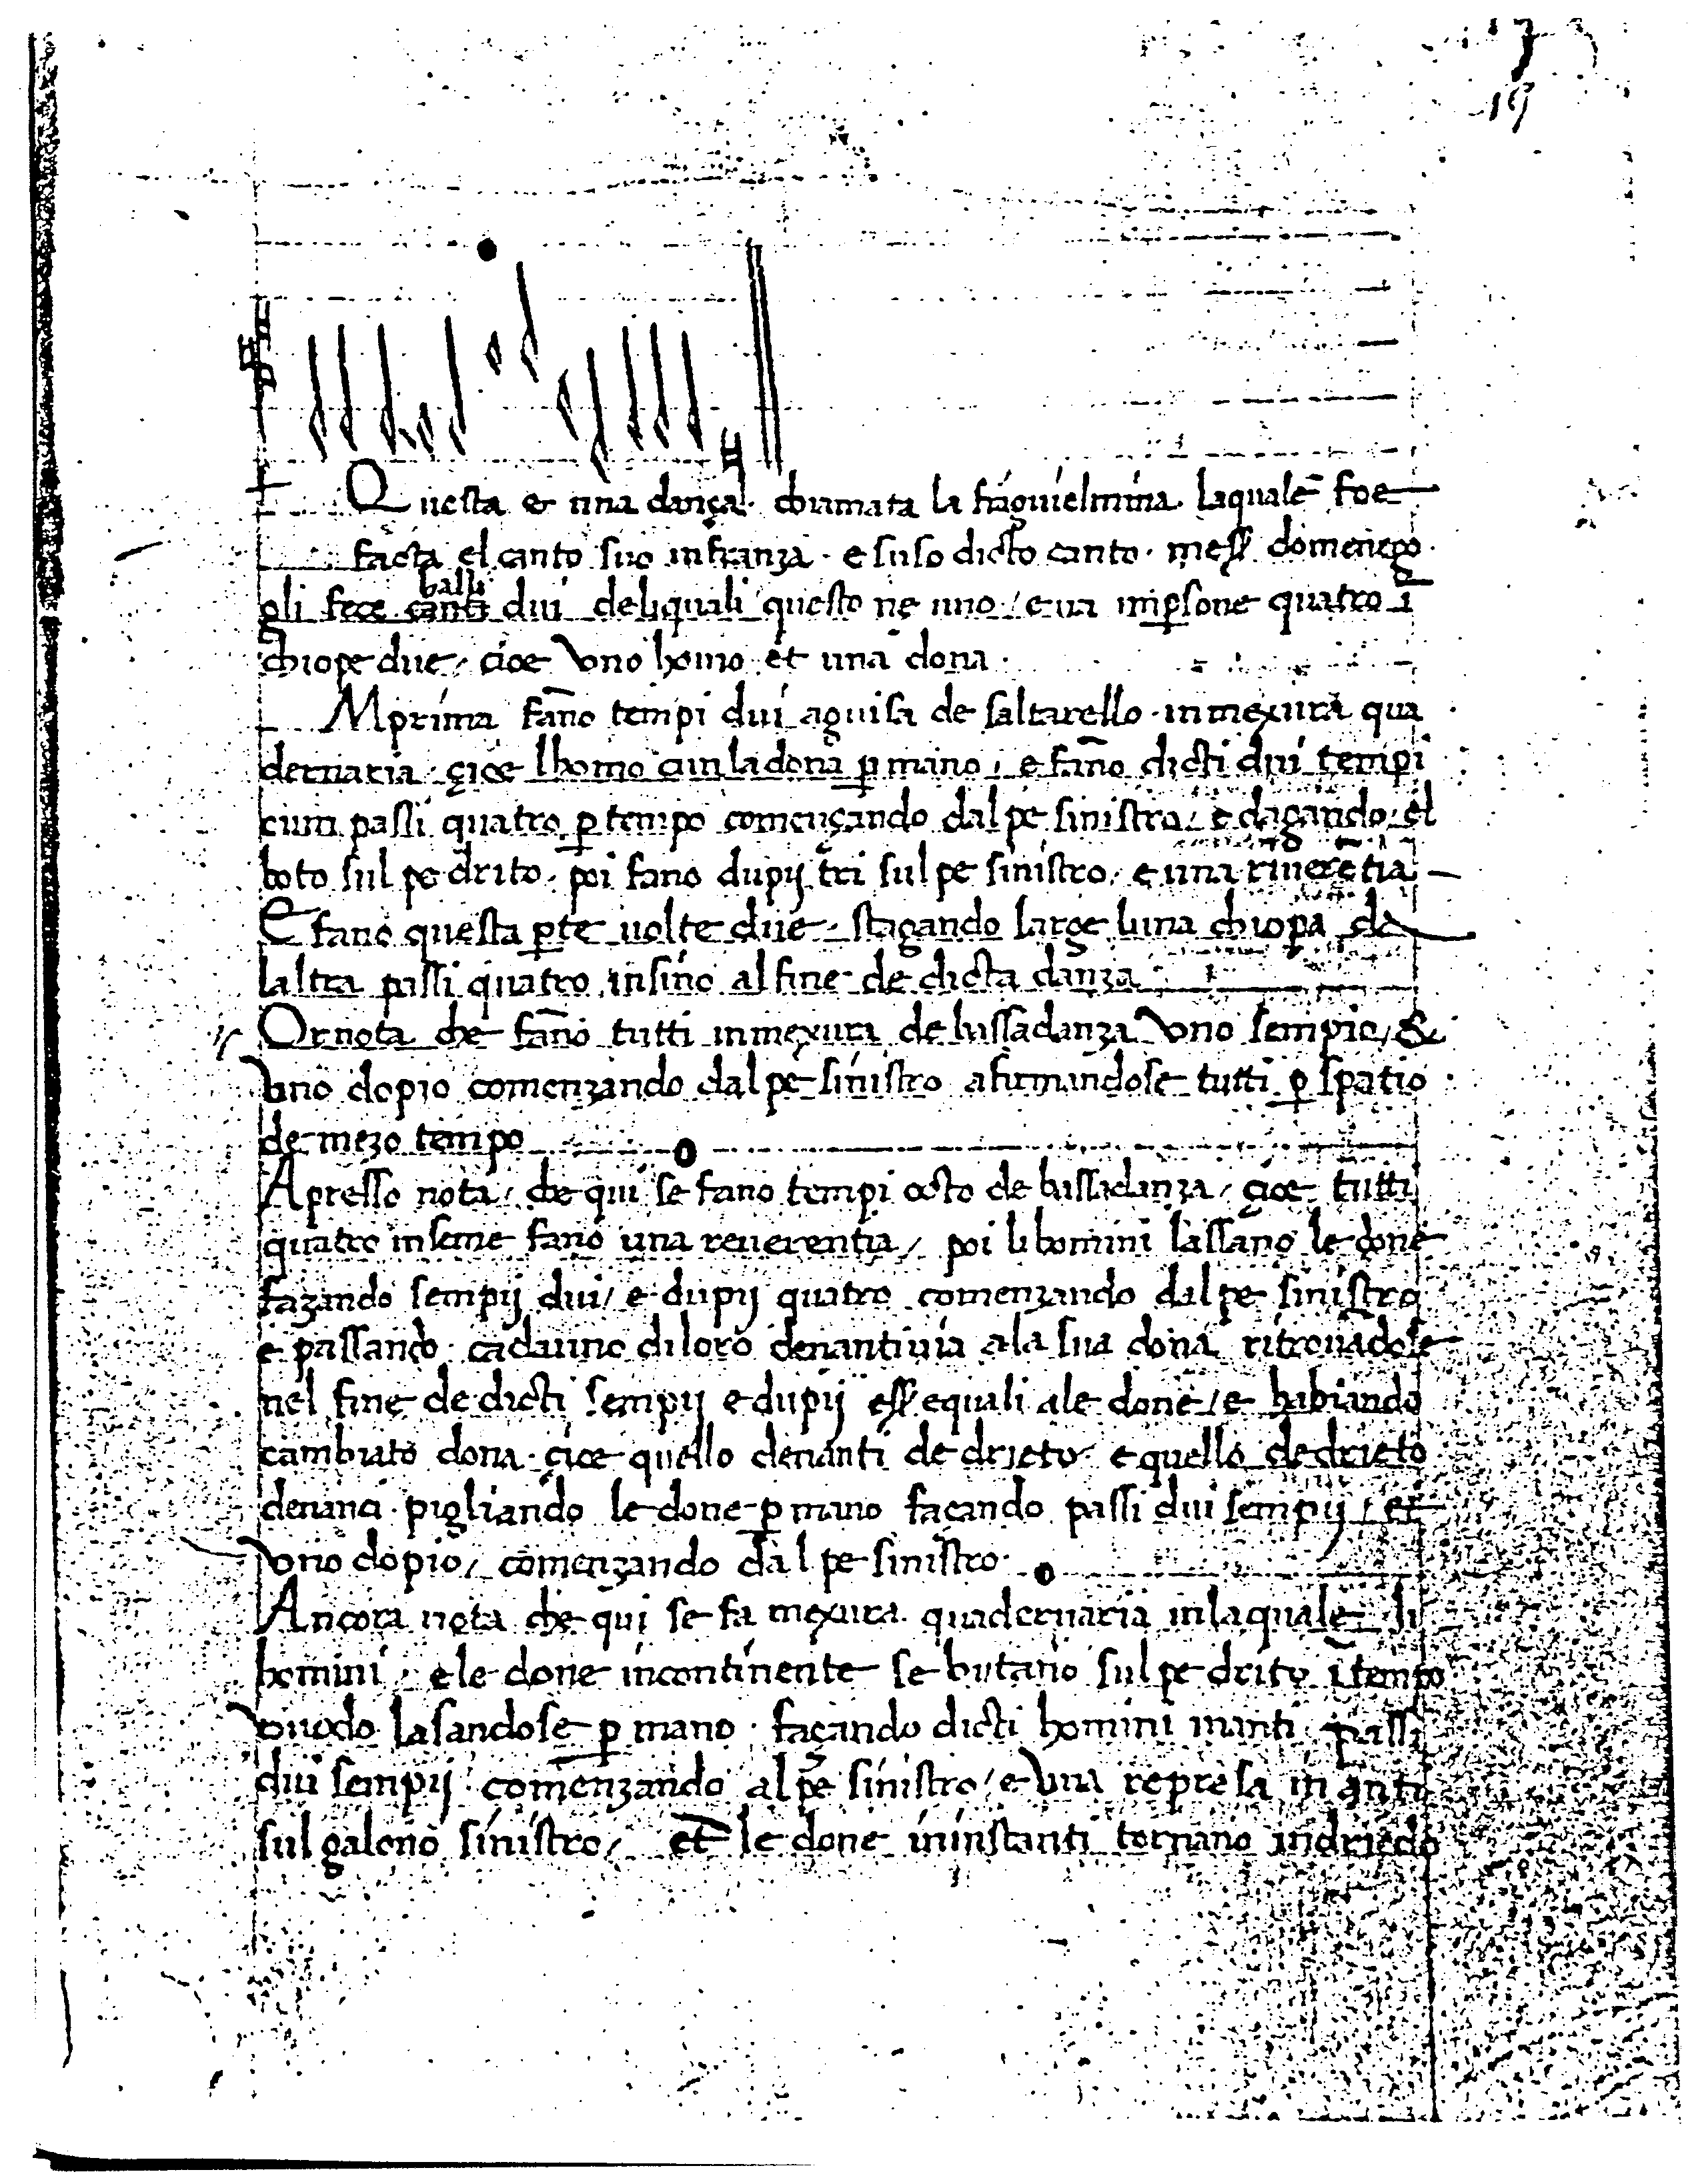 19
Questa e una dança chiamata la fraguielmina laquale foe
facta el canto suo in franza · e suso dicto canto · mess domenego
balli
gli fece canti dui deliquali questo ne uno / e va in p̱sone quatro ī
chiope due / cioe vno homo et una dona ·
Mprima fano tempi dui aguisa de saltarello · in mexura qua
dernaria · çioe lhomo cun la dona p̱ mano / e fano dicti dui tempi
cum passi quatro p̱ tempo començando dal pe sinistro / e dagando el
boto sul pe drito · poi fano dupij tri sul pe sinistro / e una riverētia
E fano questa p̱te uolte due · stagando large luna chiopa de
laltra passi quatro insino al fine de dicta danza
Or nota che fano tutti in mexura de bassadanza vno sempio / &
vno dopio comenzando dal pe sinistro afirmandose tutti p̱ spatio
de mezo tempo
Apresso nota / che qui se fano tempi octo de bassadanza / çioe tutti
quatro inseme fano una reuerentia / poi li homini lassano le done
fazando sempij dui / e dupij quatro comenzando dal pe sinistro
e passando cadauno di loro denanti via a la sua dona ritrouādose
nel fine de dicti sempij e dupij ess equali ale done / e habiando
cambiato dona · çioe quello denanti de drieto e quello de drieto
denanci · pigliando le done p̱ mano façando passi dui sempij / et
vno dopio / comenzando dal pe sinistro ·
Ancora nota che qui se fa mexura quadernaria in laquale li
homini / e le done incontinente se butano sul pe drito ī tempo
vuodo lasandose p̱ mano · façando dicti homini inanti passi
dui sempij comenzando al pe sinistro / e vna represa inanti
sul galono sinistro / et le done in instanti tornano indriedo